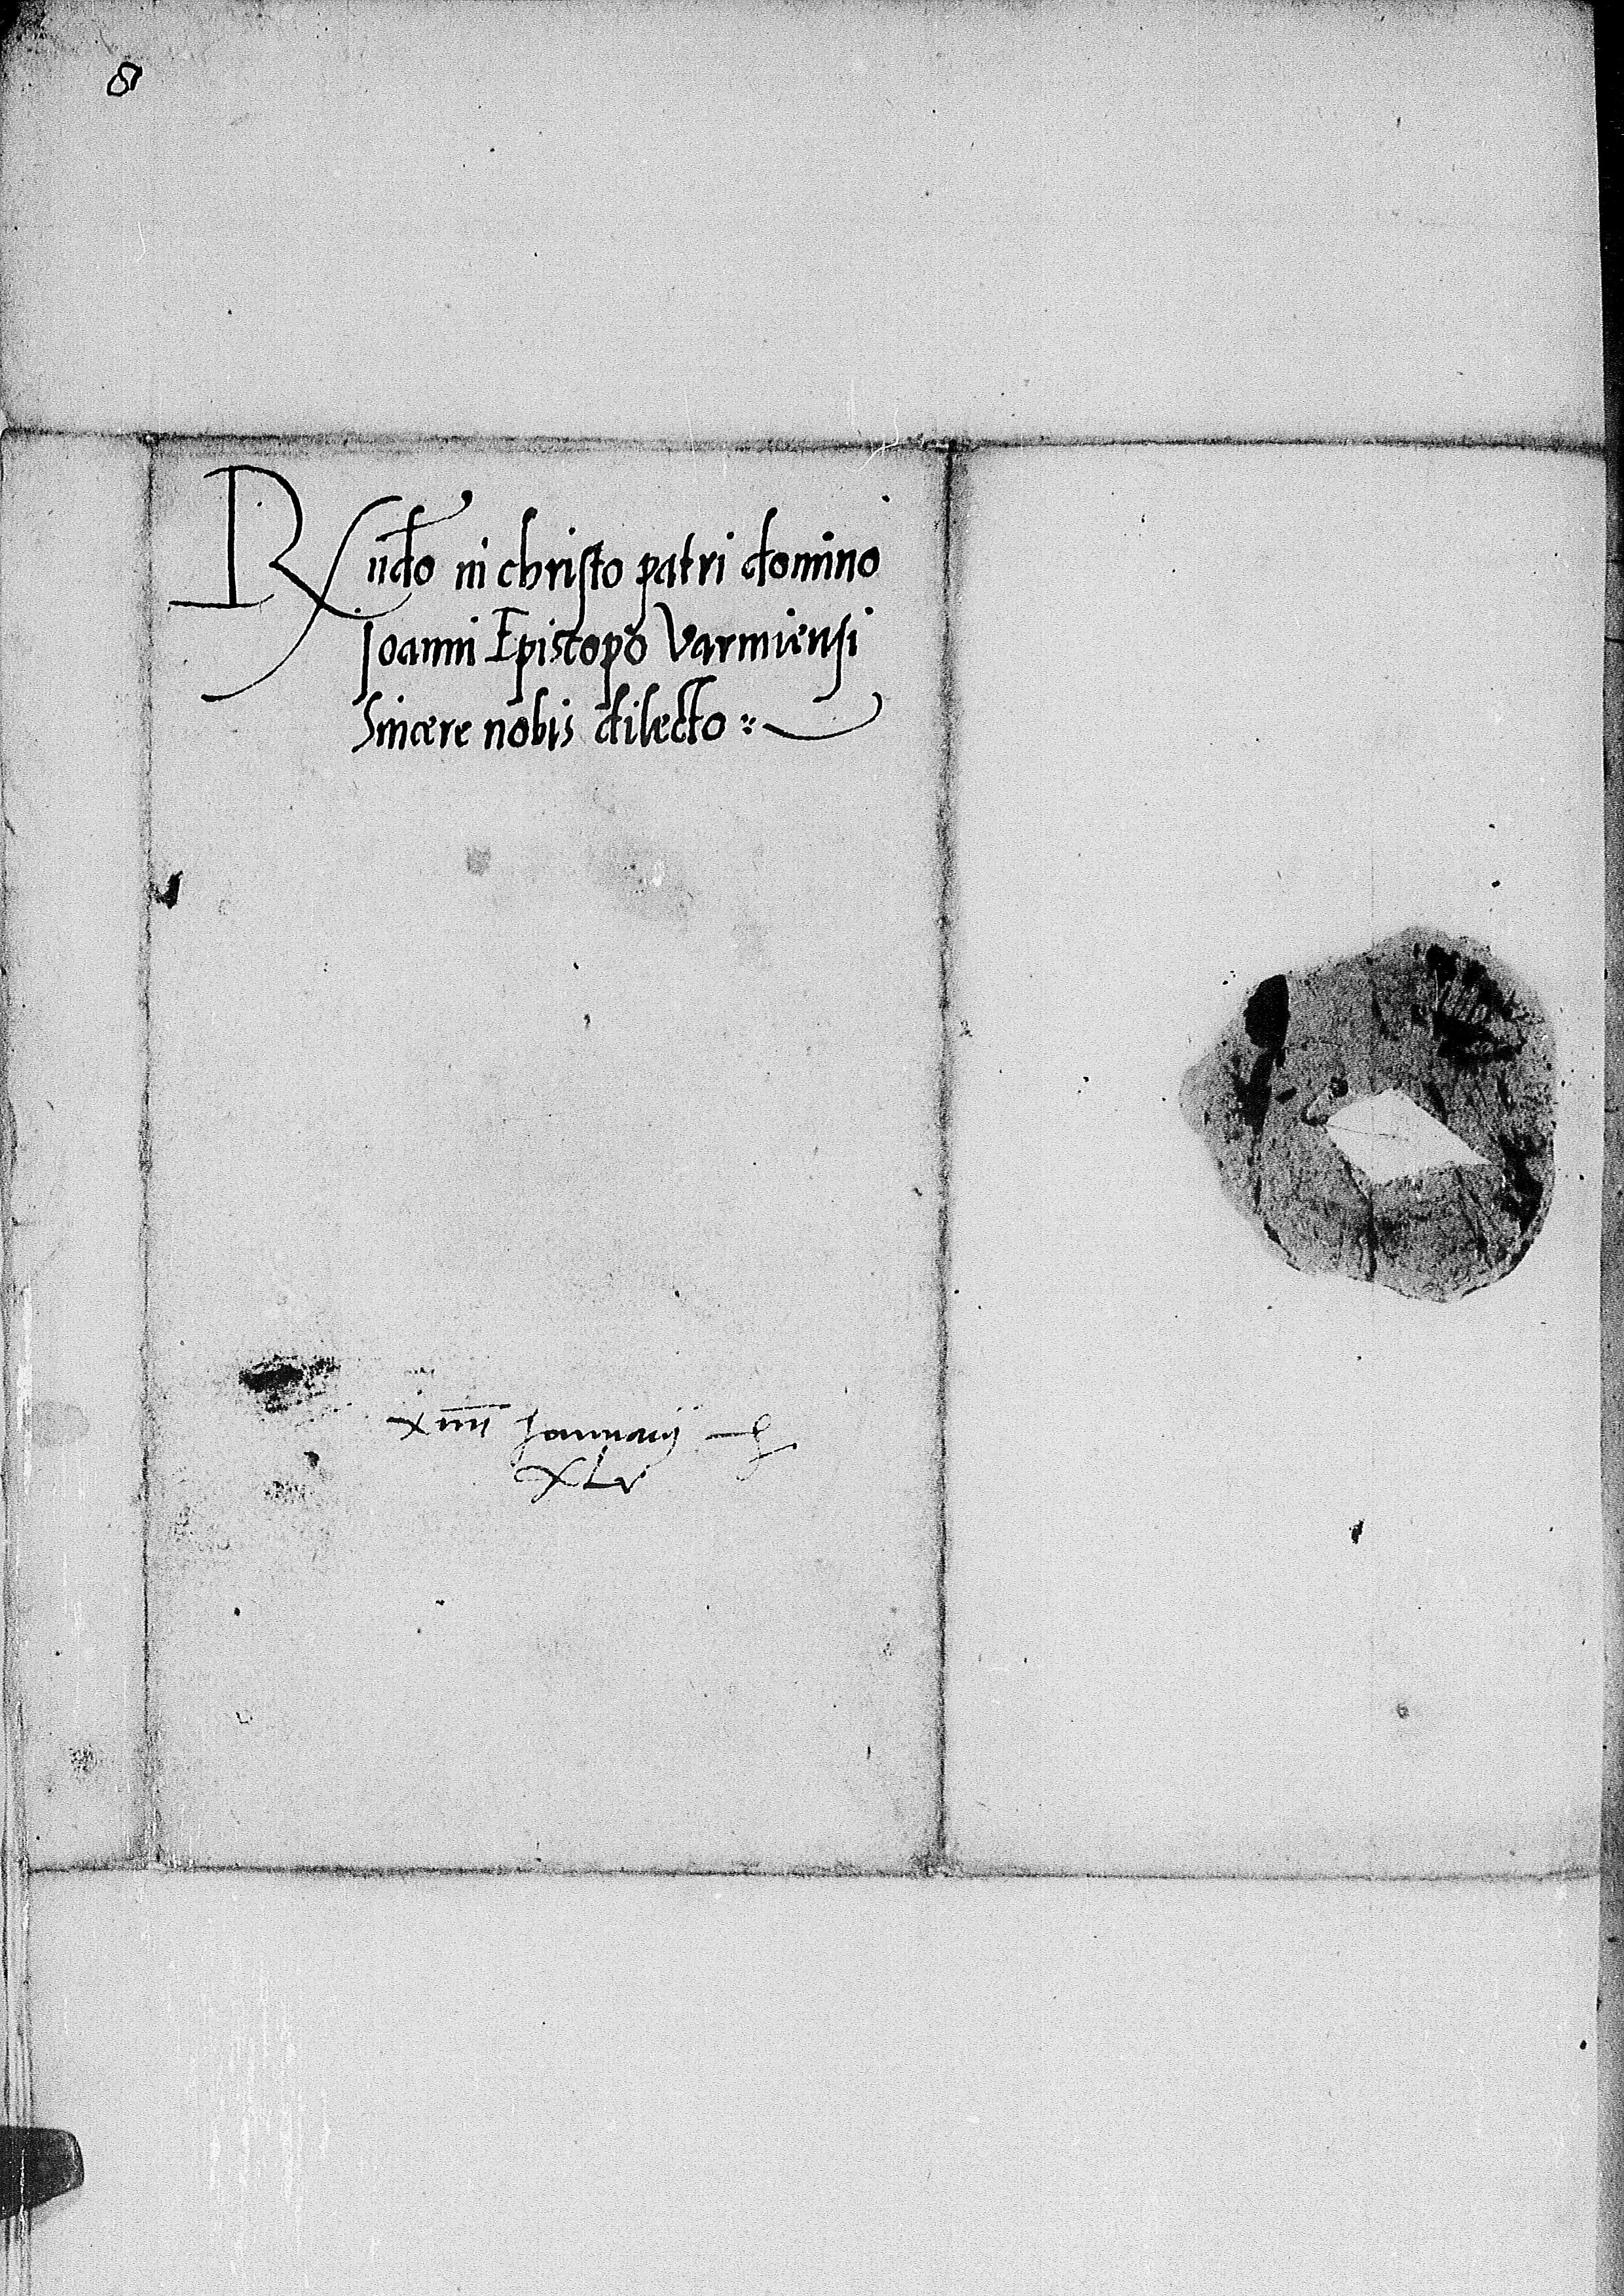 8
Rndo in christo patri domino
Joanni Episcopo Varmiensi
Sincere nobis dilecto
xiiii Januarij
XLv